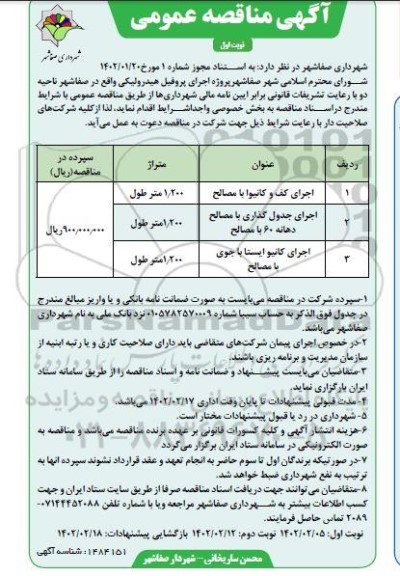 آگهی مناقصه عمومی
نوبت اول
شهرداری صفاشهر
شهرداری صفاشهر در نظر دارد: به استناد مجوز شماره ۱ مورخ ۱۴۰۲/۰۱/۲۰
شورای محترم اسلامی شهر صفاشهر پروژه اجرای پروفیل هیدرولیکی واقع در صفاشهر ناحیه
دو با رعایت تشریفات قانونی برابر آیین نامه مالی شهرداری‌ها از طریق مناقصه عمومی با شرایط
مندرج در اسناد مناقصه به بخش خصوصی واجد شرایط اقدام نماید، لذا از کلیه شرکت‌های
صلاحیت دار با رعایت شرایط ذیل جهت شرکت در مناقصه دعوت به عمل می‌آید.
ردیف عنوان متراژ سپرده در مناقصه(ریال)
۱ اجرای کف و کانیوا با مصالح ۱/۲۰۰ متر طول
۲ اجرای جدول گذاری با مصالح دهانه ۶۰ با مصالح ۱/۲۰۰ متر طول ۹۰۰/۰۰۰/۰۰۰ ریال
۳ اجرای کانیو ایستا با جوی با مصالح ۱/۲۰۰ متر طول
۱-سپرده شرکت در مناقصه می‌بایست به صورت ضمانت نامه بانکی و یا واریز مبالغ مندرج
در جدول فوق الذکر به حساب سیبا شماره ۰۱۰۵۷۸۲۵۷۰۰۰۹ نزد بانک ملی به نام شهرداری
صفاشهر می‌باشد.
۲-در خصوص اجرای پیمان شرکت‌های متقاضی باید دارای صلاحیت کاری و یا رتبه ابنیه از
سازمان مدیریت و برنامه ریزی باشند.
۳-متقاضیان می‌بایست پیشنهاد و ضمانت نامه و اسناد مناقصه را از طریق سامانه ستاد
ایران بارگزاری نماید.
۴-مدت قبولی پیشنهادات تا پایان وقت اداری ۱۴۰۲/۰۲/۱۷ می‌باشد.
۵- شهرداری در رد یا قبول پیشنهادات مختار است.
۶-هزینه انتشار آگهی و کلیه کسورات قانونی بر عهده برنده مناقصه می‌باشد و مناقصه به
صورت الکترونیکی در سامانه ستاد ایران برگزار می‌گردد.
۷-در صورتیکه برندگان اول تا سوم حاضر به انجام تعهد و عقد قرارداد نشوند سپرده آنها به
ترتیب به نفع شهرداری ضبط خواهد شد.
۸-متقاضیان می‌توانند جهت دریافت اسناد مناقصه صرفا از طریق سایت ستاد ایران و جهت
کسب اطلاعات بیشتر به شهرداری صفاشهر مراجعه ویا با شماره تلفن ۰۷۱۴۴۴۵۲۰۸۸-
۲۰۸۹ تماس حاصل فرمایند.
نوبت اول: ۱۴۰۲/۰۲/۰۵ نوبت دوم: ۱۴۰۲/۰۲/۱۲ بازگشایی پیشنهادات: ۱۴۰۲/۰۲/۱۸
شناسه آگهی: ۱۴۸۴۱۵۱
محسن ساریخانی - شهردار صفاشهر